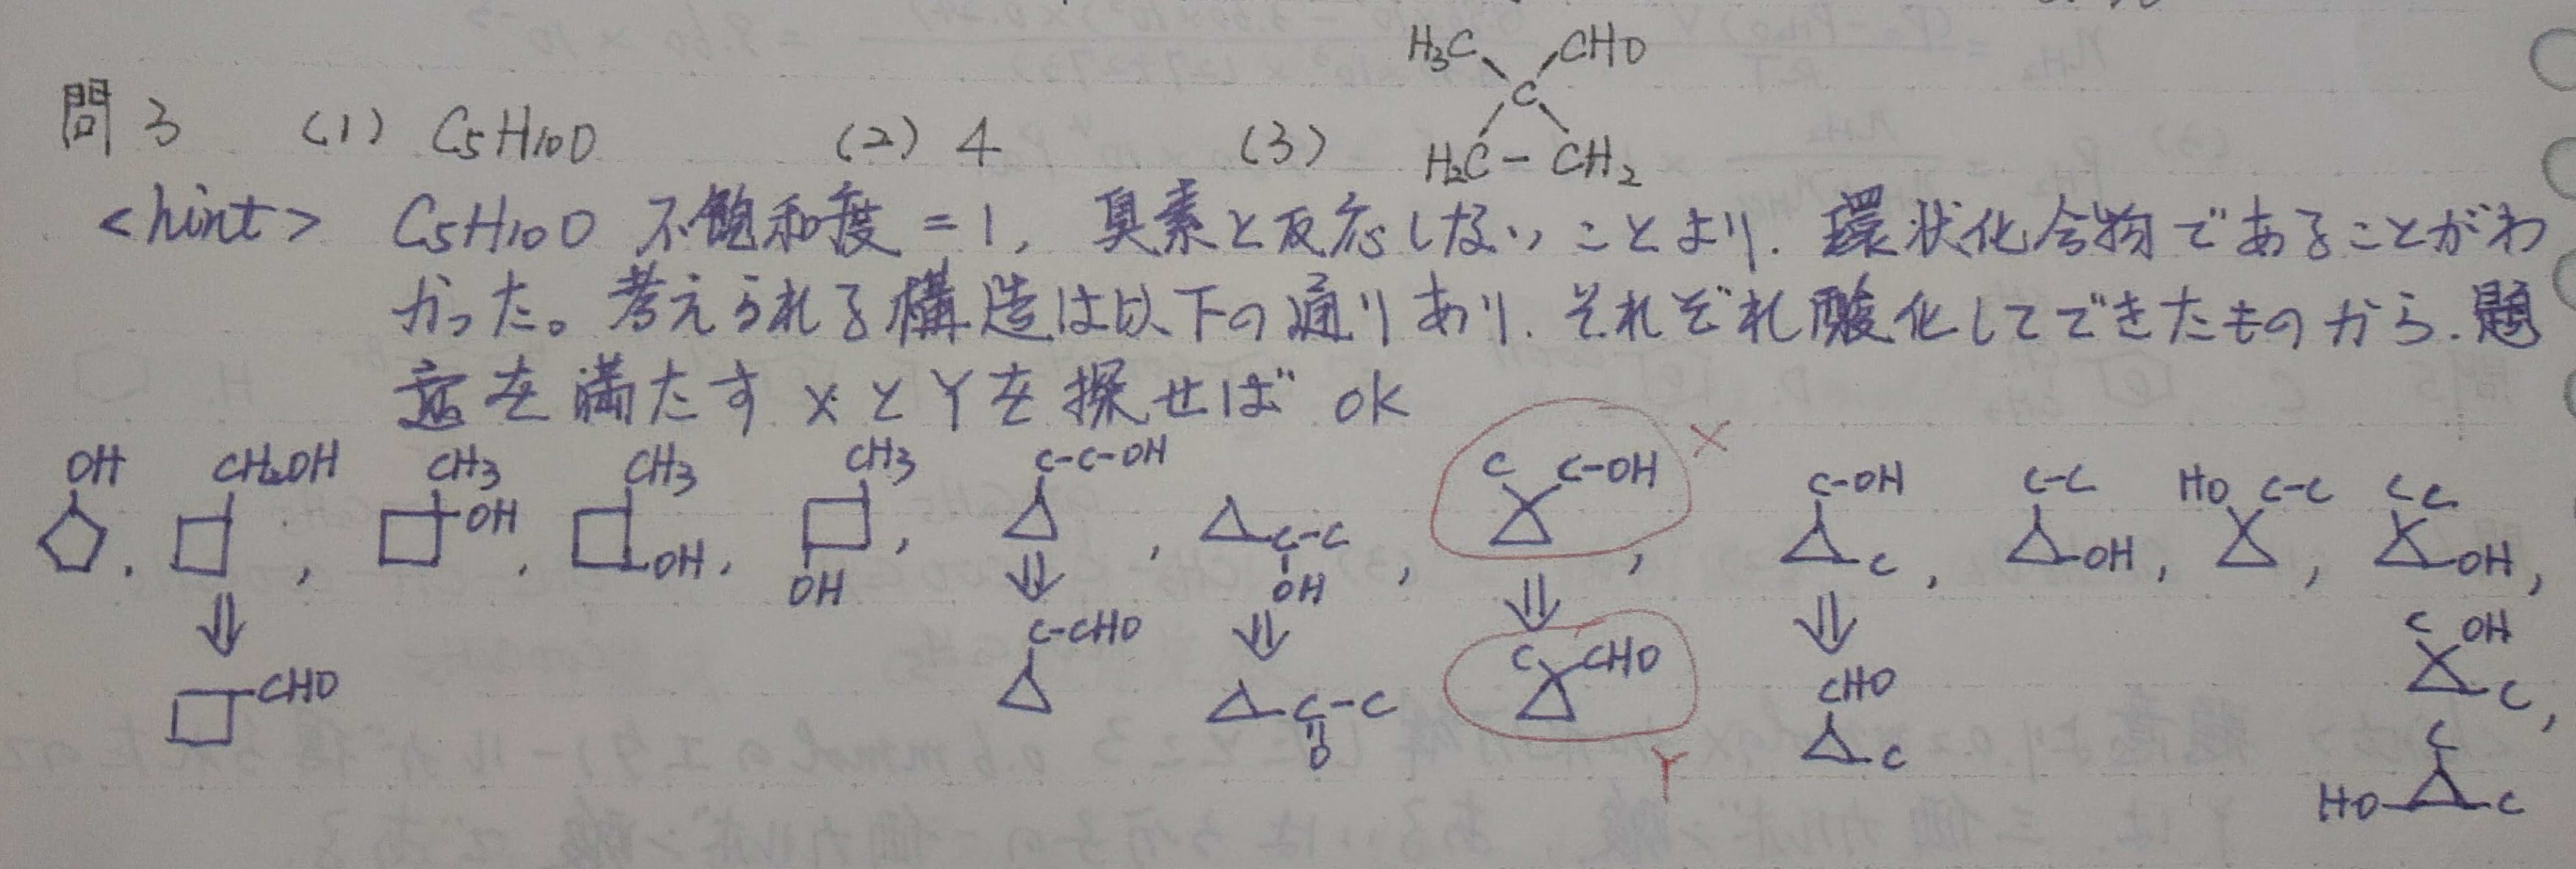 H₃C CHO
C
問3 (1) C₅H₁₀O (2) 4 (3) H₂C-CH₂
<hint> C₅H₁₀O 不飽和度=1, 臭素と反応しないことより、環状化合物であることがわ
かった。考えられる構造は以下の通りあり、それぞれ酸化してできたものから、題
意を満たすXとYを探せばOK
OH CH₂OH CH₃ CH₃ CH₃ C-C-OH C C-OH X C-OH C-C HO C-C C C
OH , OH , OH , C-C OH , C , OH , OH ,
⇓ ⇓ ⇓ ⇓ ⇓ C OH
CHO C-CHO C-C O C CHO CHO C C ,
Y C
HO C